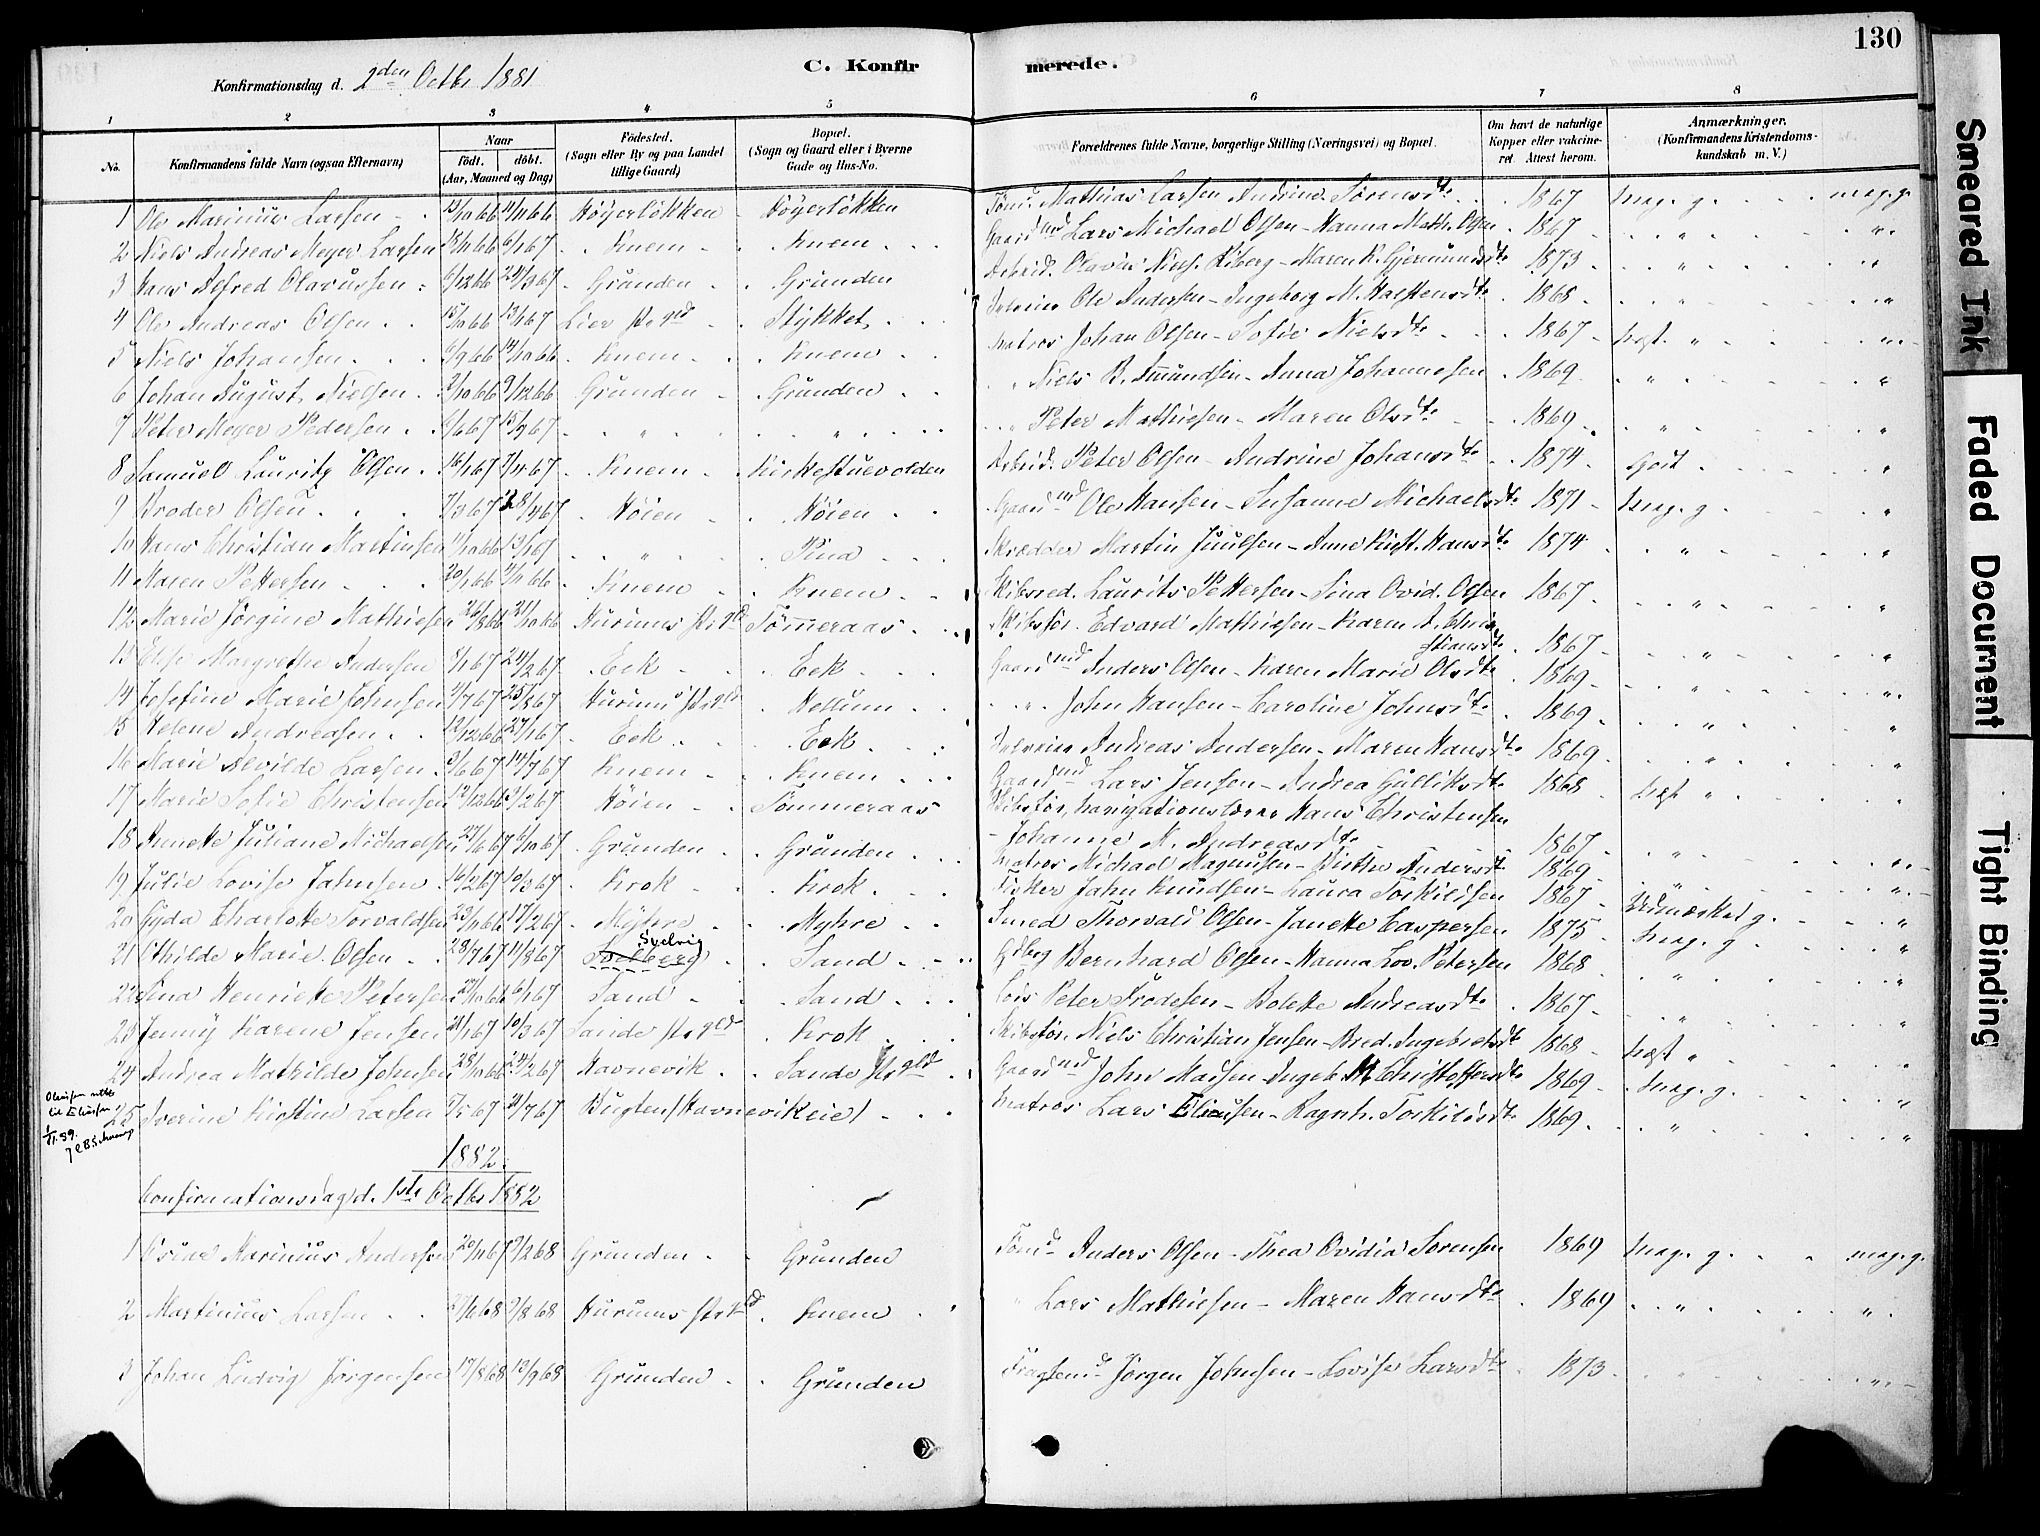 130
Konfirmationsdag d. 2den Octbr 1881
C. Konfirmerede.
1 2 3 4 5 6 7 8
No.
Konfirmandens fulde Navn (ogsaa Efternavn)
Naar
födt. döbt.
(Aar, Maaned og Dag)
Födested.
(Sogn eller By og paa Landet
tillige Gaard)
Bopæl.
(Sogn og Gaard eller i Byerne
Gade og Hus-No.
Forældrenes fulde Navne, borgerlige Stilling (Næringsvei) og Bopæl.
Om havt de naturlige
Kopper eller vakcine-
ret. Attest herom.
Anmærkninger.
(Konfirmandens Kristendoms-
kundskab m. V.)
1 Ole Marinius Larsen Höyerlökken Höyerlökken Tömd. Mathias Larsen Andrine Sörensdtr 1867 meg. g. meg. g.
2 Niels Andreas Meyer Larsen Knem Knem Gaardmd Lars Michael Olsen - Hanna Math. Olsen 1867 " "
3 Hans Alfred Olavussen 6/12 66 24/3 67 Grunden Grunden Arbeid. Olavus Niels. Kiberg - Maren K. Gjermundsdtr 1873 " "
4 Ole Andreas Olsen 15/10 66 13/1 67 Lier Prgld Stykket Ole Andersen - Ingeborg M. Halstensdtr 1868 " "
5 Niels Johansen 6/9 66 14/10 66 Knem Knem Matros Johan Olsen - Sofie Nielsdtr 1867 "
6 Johan August Nielsen 9/12 66 Grunden Grunden " Niels B. Amundsen - Anna Johannesen 1869 " "
7 Peter Meyer Pedersen " " " Peter Mathiesen - Maren Olsdtr 1869 " "
8 Samuel Lauritz Olsen 16/1 67 7/4 67 Knem Kirkestuevolden Arbeid. Peter Olsen - Andrine Johansdtr 1874 Godt "
9 Broder Olsen 7/3 67 28/4 67 Höien Höien Gaardmd Ole Hansen - Susanne Michaelsdtr 1871 meg. g. "
10 Hans Christian Martinsen 11/10 66 13/1 67 " Pina Skrædder Martin Juulsen - Anne Kirst. Hansdtr 1874 " "
11 Maren Pettersen Knem Knem Skibsred. Laurits Pettersen - Lina Ovid. Olsen 1867 " "
12 Marie Jörgine Mathiesen 26/8 66 21/10 66 Hurums Prgld Tömmeraas Skibsför. Edvard Mathiesen - Karen A. Chri-
stiansdtr 1867 " "
13 Elise Margrethe Andersen 8/1 67 24/2 67 Eek Eek Gaardmd Anders Olsen - Karen Marie Olsdtr 1869 " "
14 Josefine Marie Johnsen 2/7 67 25/8 67 Hurum Prgld Hellum " John Hansen - Caroline Johnsdtr 1869 " "
15 Helene Andreasen 27/1 67 Eek Eek Andreas Andersen - Maren Hansdtr 1869 " "
16 Marie Alvilde Larsen 14/7 67 Knem Knem Gaardmd Lars Jensen - Andrea Gulliksdtr 1868 "
17 Marie Sofie Christensen 12/12 66 3/2 67 Höien Tömmeraas Skibsför, Navigationslærer Hans Christensen
- Johanne M. Andreasdtr 1867 "
18 Annette Juliane Michaelsen 27/6 67 6/10 67 Grunden Grunden Matros Michael Magnusen - Birthe Andersdtr 1869 "
19 Julie Lovise Jahnsen 16/2 67 10/3 67 Krok Krok Fisker Jahn Knudsen - Laura Torkildsen 1867 Udmærket g.
20 Gyda Charlotte Torvaldsen 23/11 66 17/2 67 Myhre Myhre Smed Thorvald Olsen - Janette Caspersen 1875 meg. g. "
21 Othilde Marie Olsen 28/7 67 11/8 67 Solberg Svelvig Sand Gdbrg Bernhard Olsen - Hanna Lov. Petersen 1868 " "
22 Lina Henriette Petersen 6/1 67 Sand Sand Lods Peter Frodesen - Bolette Andreasdtr 1867 " "
23 Jenny Karene Jensen 21/1 67 10/3 67 Sande Prgld Krok Skibsför. Niels Christian Jensen - Bred. Ingebretsdtr 1868 "
24 Andrea Mathilde Johnsen 28/10 66 24/2 67 Havnevik Sande Prgld Gaardmd John Madsen - Ingeb. M. Christoffersdtr 1869 meg. g. "
25 Iverine Kirstine Larsen 21/7 67 Bugten (Havnevikeie) Matros Lars Eliausen - Ragnh. Torkildsdtr 1869 " "
1882.
Confirmationsdag d. 1ste Octbr 1882
1 Oscar Marinius Andersen 20/11 67 9/2 68 Grunden Grunden Tömd. Anders Olsen - Thea Ovidia Sorensen 1869 meg. g. meg. g.
2 Martinius Larsen 9/8 68 Hurums Prgld Knem " Lars Mathiesen - Maren Hansdtr 1869 " "
3 Johan Ludvig Jörgensen 17/8 68 13/9 68 Grunden Grunden Jörgen Johnsen - Lovise Larsdtr 1873 " "
Smeared Ink
Faded Document
Tight Binding